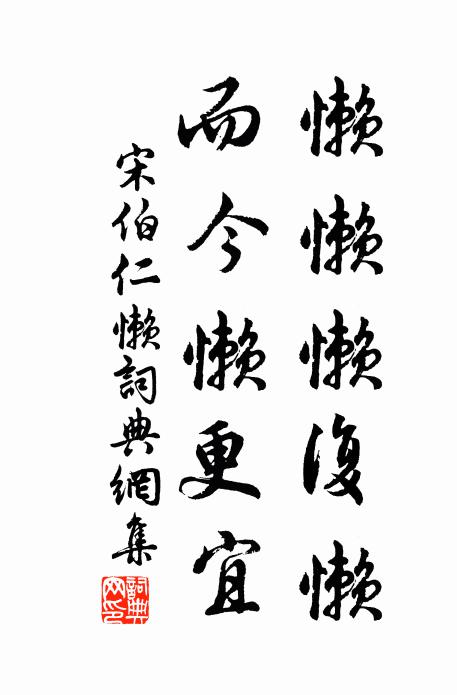 懶懶懶復懶
而今懶更宜
宋伯仁懶詞典網集
詞典網印